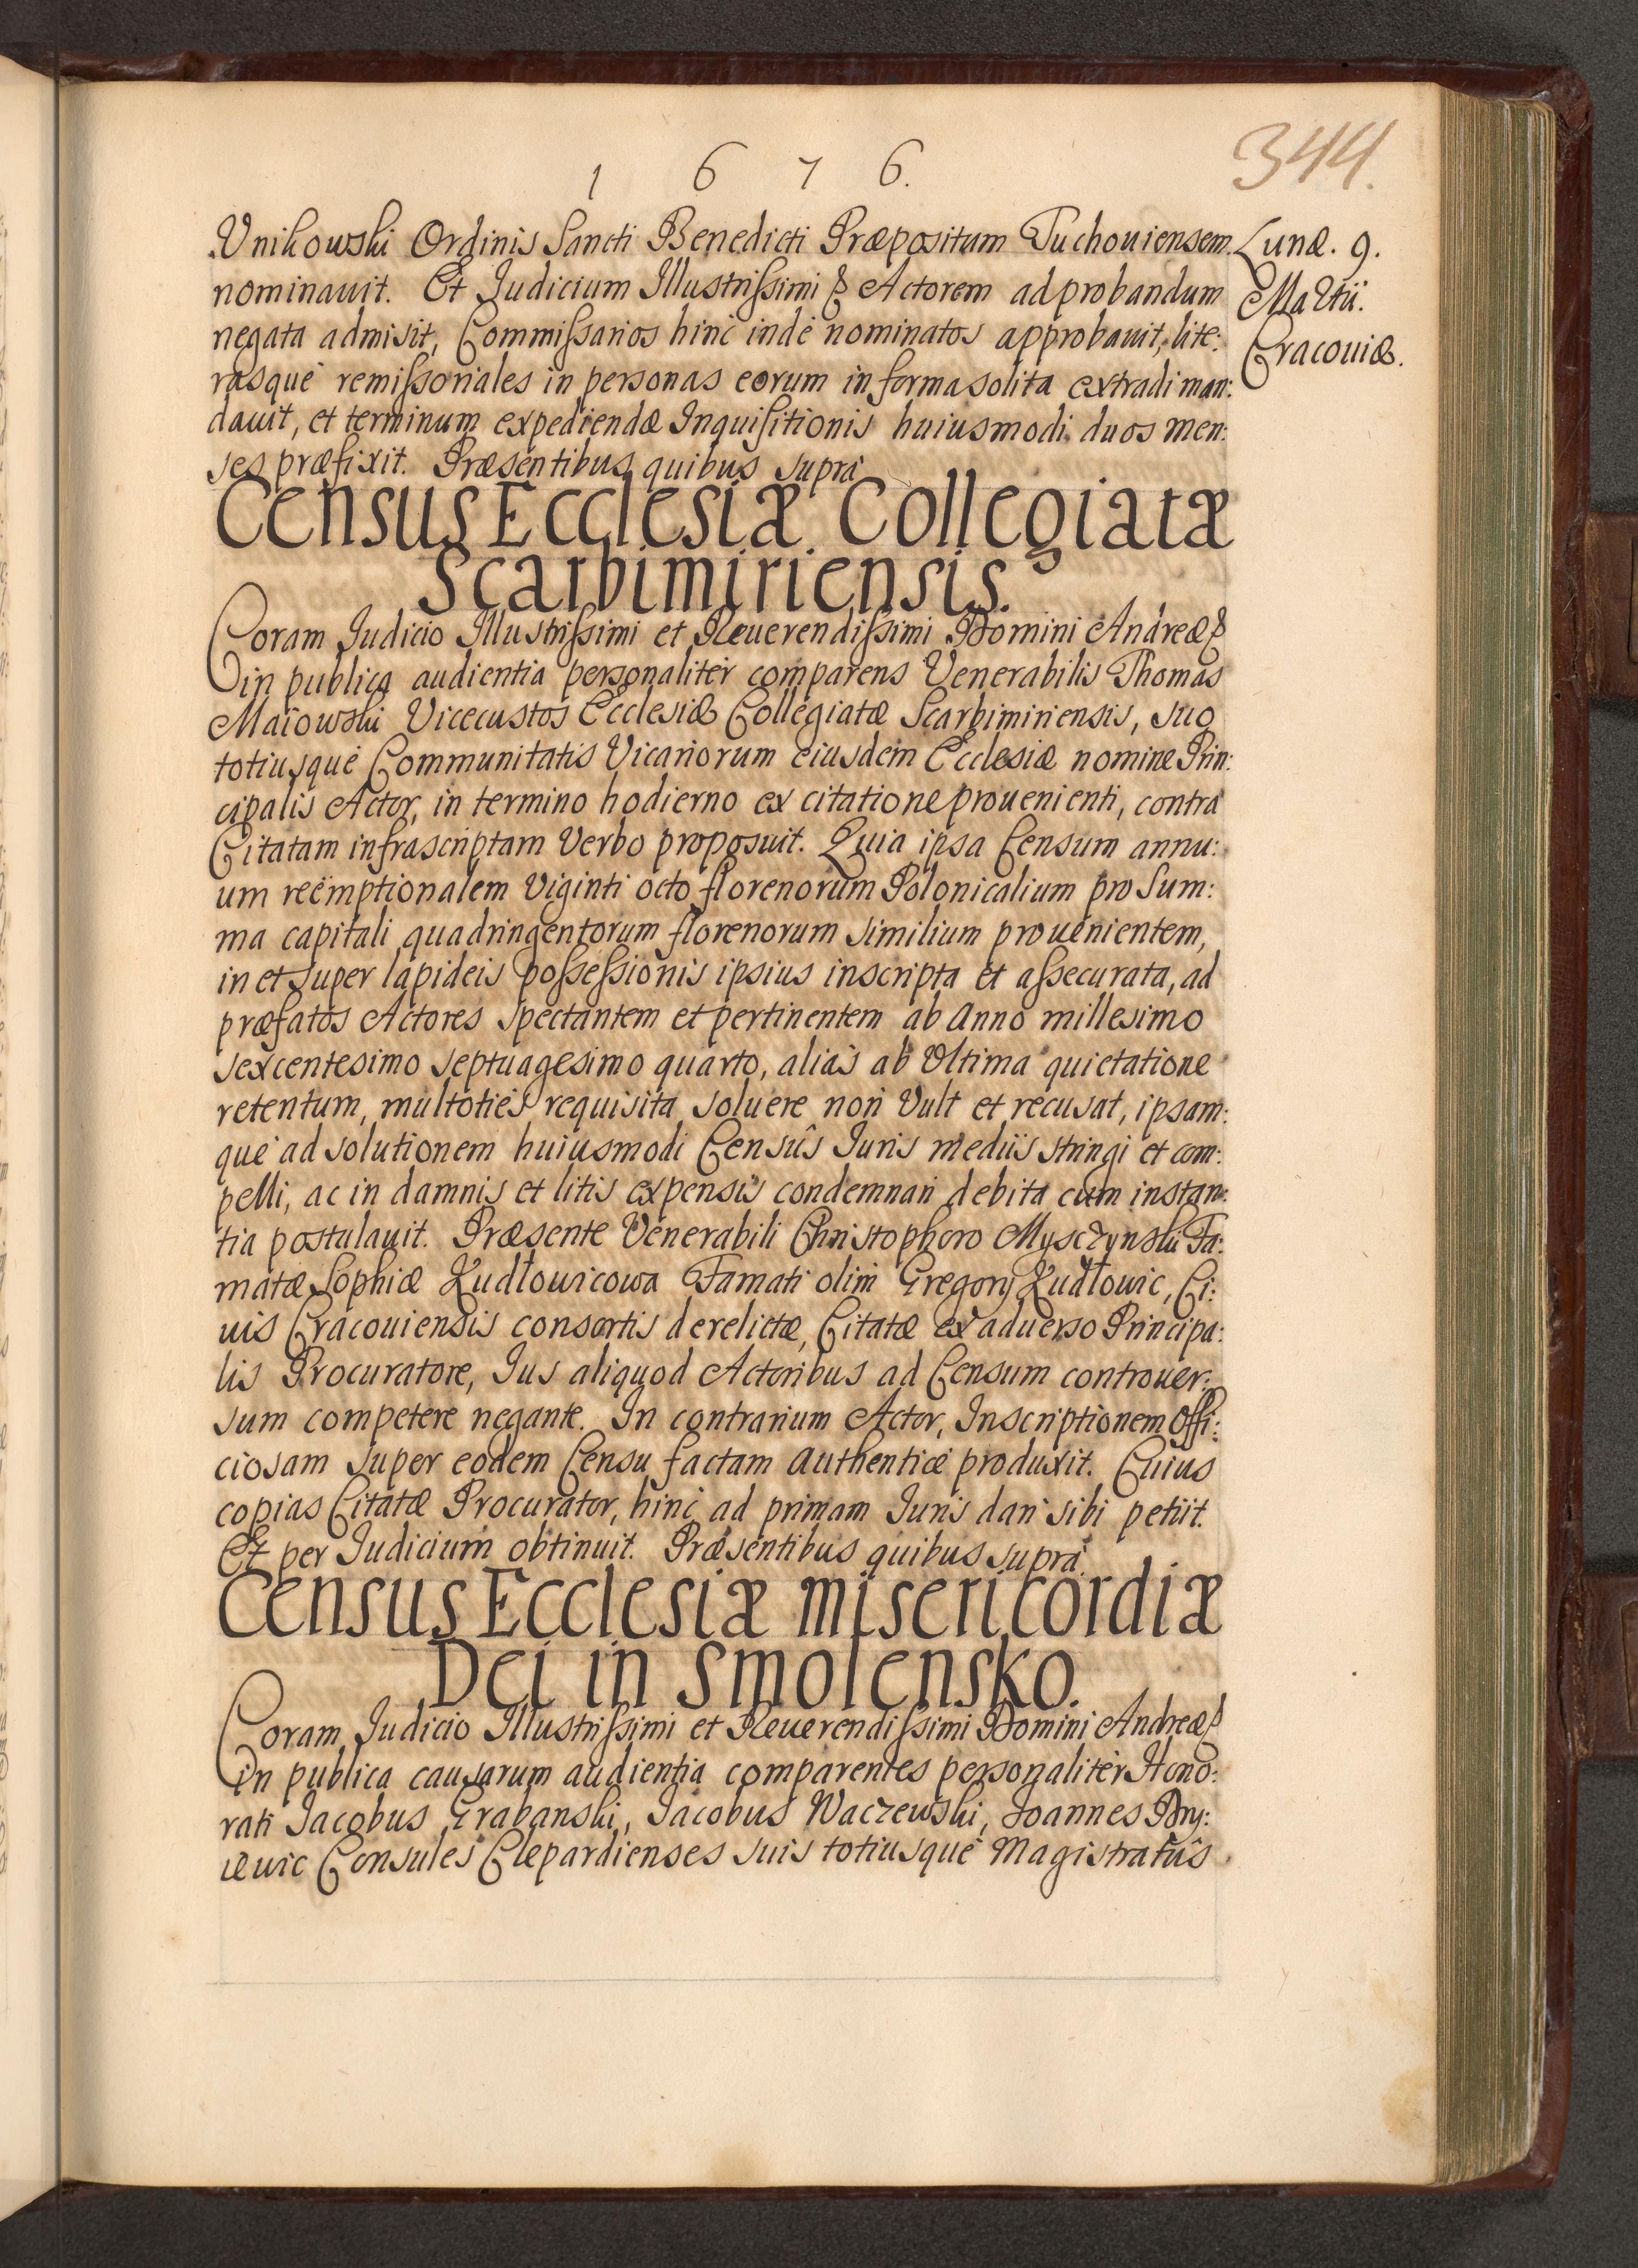 344.
1 6 7 6.
Lunæ. 9.
Martii.
Cracouiæ.
Unikowski Ordinis Sancti Benedicti Præpositum Tuchouiensem
nominauit. Et Judicium Illustrissimi & Actorem ad probandum
negata admisit, Commissarios hinc inde nominatos approbauit, lite:
rasque remissoriales in personas eorum in forma solita extradi man:
dauit, et terminum expediendæ Inquisitionis huiusmodi duos men:
ses præfixit. Præsentibus quibus supra
Census Ecclesiæ Collegiatæ
Scarbimiriensis.
Coram Judicio Illustrissimi et Reuerendissimi Domini Andreæ &
in publica audientia personaliter comparens Venerabilis Thomas
Maiowski Vicecustos Ecclesiæ Collegiatæ Scarbimiriensis, suo
totiusque Communitatis Vicariorum eiusdem Ecclesiæ nomine Prin:
cipalis Actor, in termino hodierno ex citatione prouenienti, contra
Citatam infrascriptam Verbo proposuit. Quia ipsa Censum annu:
um reëmptionalem Viginti octo florenorum Polonicalium pro Sum:
ma capitali quadringentorum florenorum similium prouenientem,
in et super lapideis possessionis ipsius inscripta et assecurata, ad
præfatos Actores spectantem et pertinentem ab Anno millesimo
sexcentesimo septuagesimo quarto, alias ab Ultima quietatione
retentum, multoties requisita soluere non Vult et recusat, ipsam:
que ad solutionem huiusmodi Censûs Juris mediis stringi et com:
pelli, ac in damnis et litis expensis condemnari debita cum instan:
tia postulauit. Præsente Venerabili Christophoro Mysczynski Fa:
matæ Sophiæ Kudłowicowa Famati olim Gregorij Kudłowic, Ci:
uis Cracouiensis consortis derelictæ, Citatæ ex aduerso Principa:
lis Procuratore, Jus aliquod Actoribus ad Censum controuer:
sum competere negante. In contrarium Actor, Inscriptionem Offi:
ciosam super eodem Censu factam Authenticè produxit. Cuius
copias Citatæ Procurator, hinc ad primam Juris dari sibi petiit.
Et per Judicium obtinuit. Præsentibus quibus supra.
Census Ecclesiæ misericordiæ
Dei in Smolensko.
Coram Judicio Illustrissimi et Reuerendissimi Domini Andreæ &
in publica causarum audientia comparentes personaliter Hono:
rati Jacobus Grabanski, Jacobus Waczewski, Joannes
Consules Clepardienses suis totiusque Magistratûs